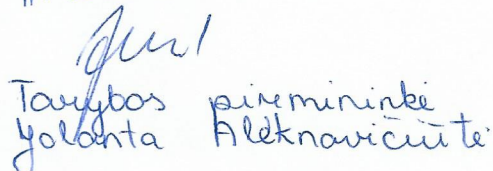 Tarybos piremininkė
Jolanta Aleknavičiūtė